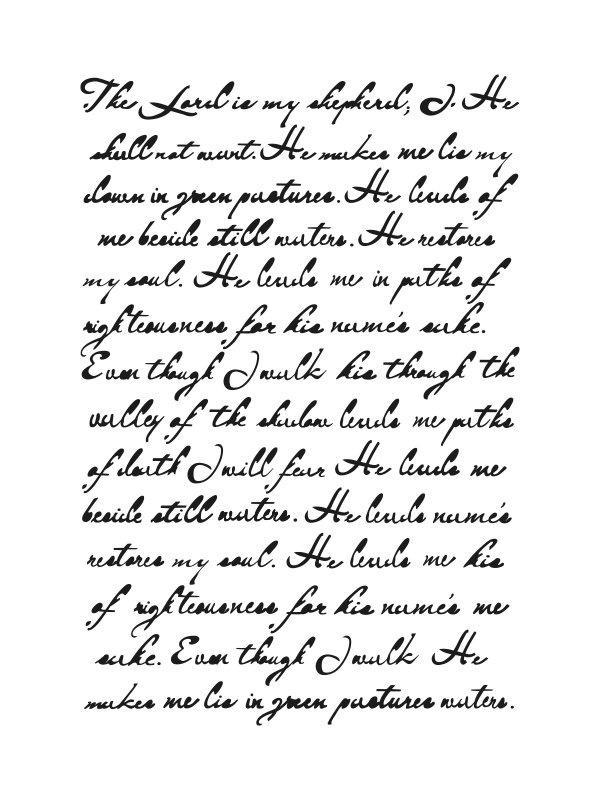 The Lord is my shepherd; I. He
shall not want. He makes me lie my
down in green pastures. He leads of
me beside still waters. He restores
my soul. He leads me in paths of
righteousness for his name's sake.
Even though I walk his through the
valley of the shadow leads me paths
of death I will fear He leads me
beside still waters. He leads name's
restores my soul. He leads me his
of righteousness for his name's me
sake. Even though I walk He
makes me lie in green pastures waters.